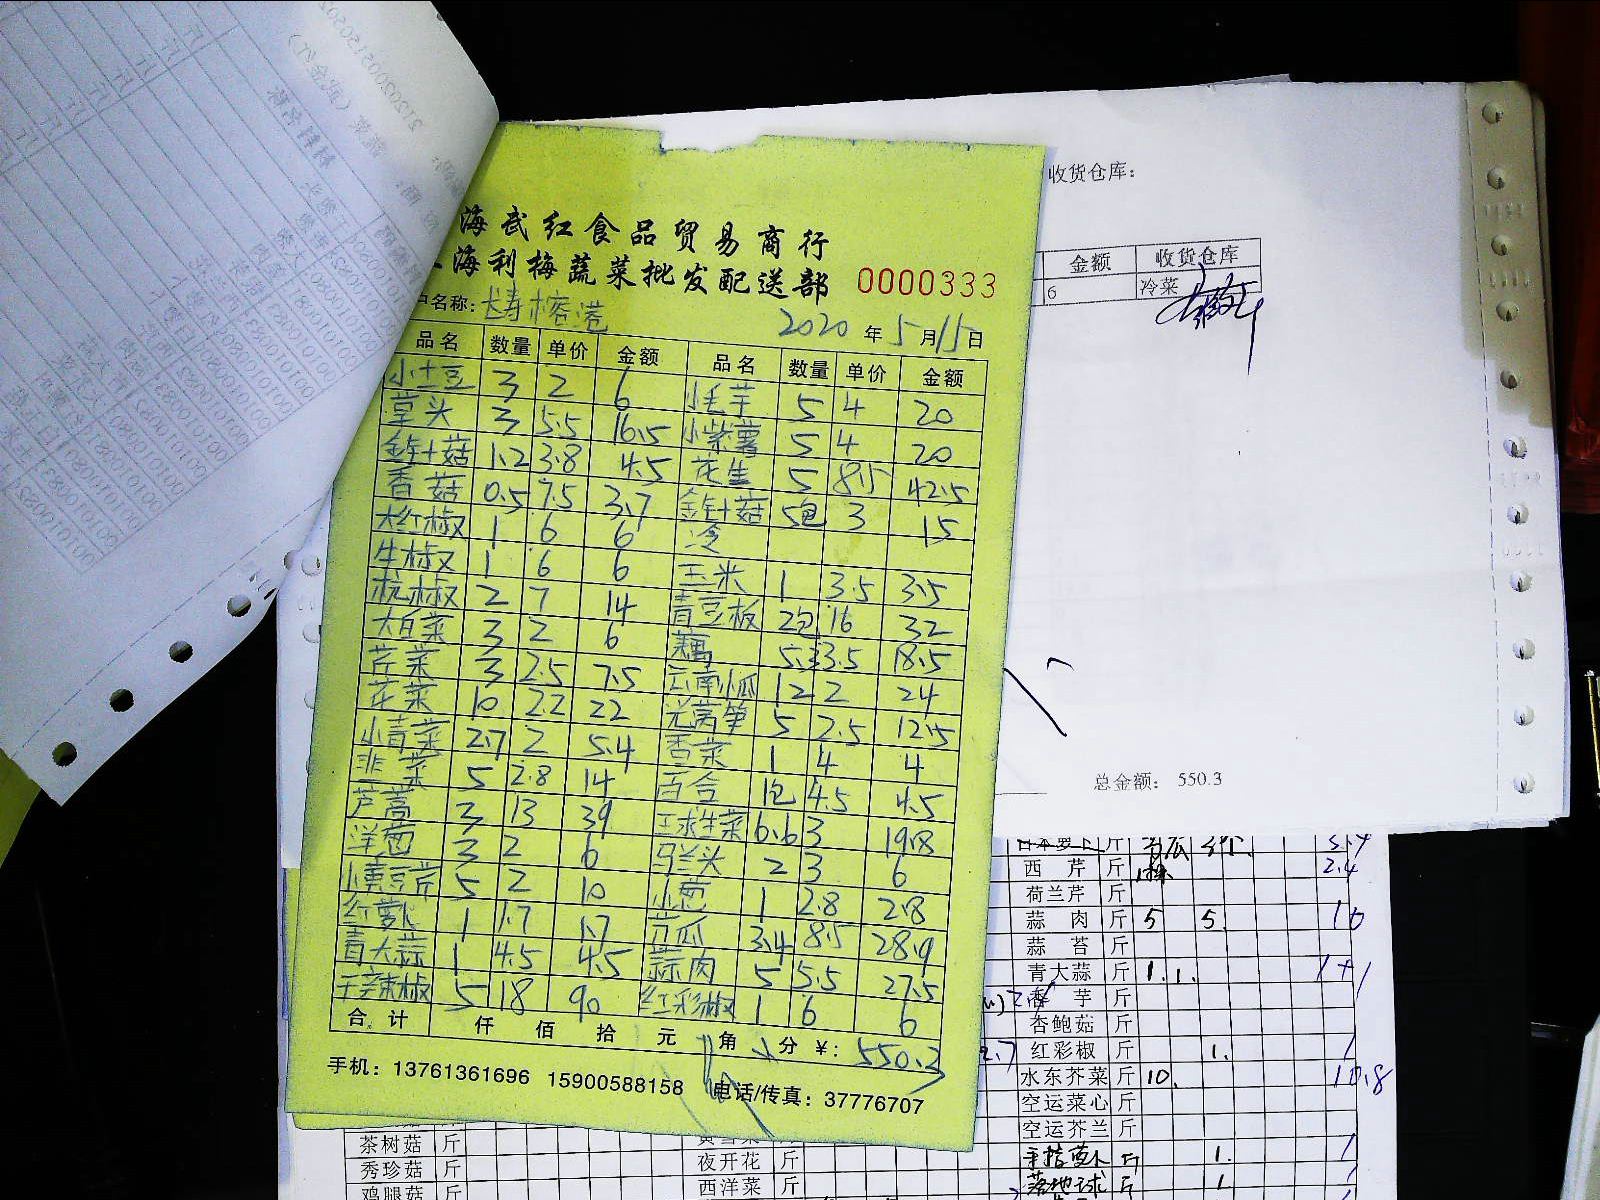 海武红食品贸易商行
海利梅蔬菜批发配送部 0000333
户名称: 长寿榕港 2020年5月15日
品名 数量 单价 金额 品名 数量 单价 金额
小土豆 3 2 6 小毛芋 5 4 20
草头 3 5.5 16.5 小紫薯 5 4 20
金针菇 1.2 3.8 4.5 花生 5 8.5 42.5
香菇 0.5 7.5 3.7 金针菇 5包 3 15
大红椒 1 6 6 冷
牛椒 1 6 6 玉米 1 3.5 3.5
杭椒 2 7 14 青豆板 2包 16 32
大白菜 3 2 6 藕 5.3 3.5 18.5
芹菜 3 2.5 7.5 云南小瓜 12 2 24
花菜 10 2.2 22 光莴笋 5 2.5 12.5
小青菜 2.7 2 5.4 香菜 1 4 4
韭菜 5 2.8 14 百合 1包 4.5 4.5
芦蒿 3 13 39 玉求生菜 6.6 3 19.8
洋葱 3 2 6 马兰头 2 3 6
小黄豆芽 5 2 10 小葱 1 2.8 2.8
红萝卜 1 1.7 1.7 苦瓜 3.4 8.5 28.9
青大蒜 1 4.5 4.5 蒜肉 5 5.5 27.5
干辣椒 5 18 90 红彩椒 1 6 6
合计 仟 佰 拾 元 角 分 ¥: 550.3
手机: 13761361696 15900588158 电话/传真: 37776707
收货仓库:
金额 收货仓库
6 冷菜
总金额: 550.3
日本萝卜 斤
西芹 斤 2.4
荷兰芹 斤
蒜肉 斤 5 5. 10
蒜苔 斤
青大蒜 斤 1. 1.
香芋 斤
杏鲍菇 斤
红彩椒 斤 1. 1
水东芥菜 斤 10. 10.8
空运菜心 斤
空运芥兰 斤
手指萝卜 斤 1. 1
落地球 斤 1
茶树菇 斤
秀珍菇 斤
鸡腿菇 斤
夜开花 斤
西洋菜 斤